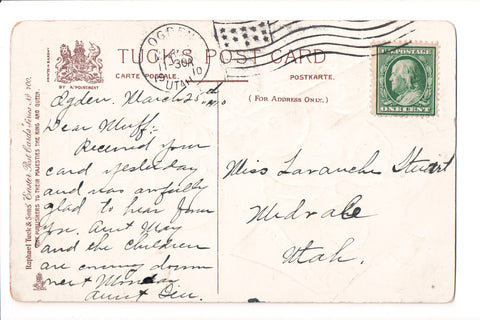 TUCK'S POST CARD
CARTE POSTALE.
POSTKARTE.
(FOR ADDRESS ONLY.)
BY APPOINTMENT
Raphael Tuck & Sons' "Easter" Post Cards Series Nº 700.
ART PUBLISHERS TO THEIR MAJESTIES THE KING AND QUEEN.
OGDEN
UTAH
U.S. POSTAGE
ONE CENT
Ogden, March 25th
Dear Muff:-
Received your
card yesterday
and was awfully
glad to hear from
you. Aunt May
and the children
are coming down
next Monday
Aunt
Miss Lavanche Stuart
Midvale
Utah.